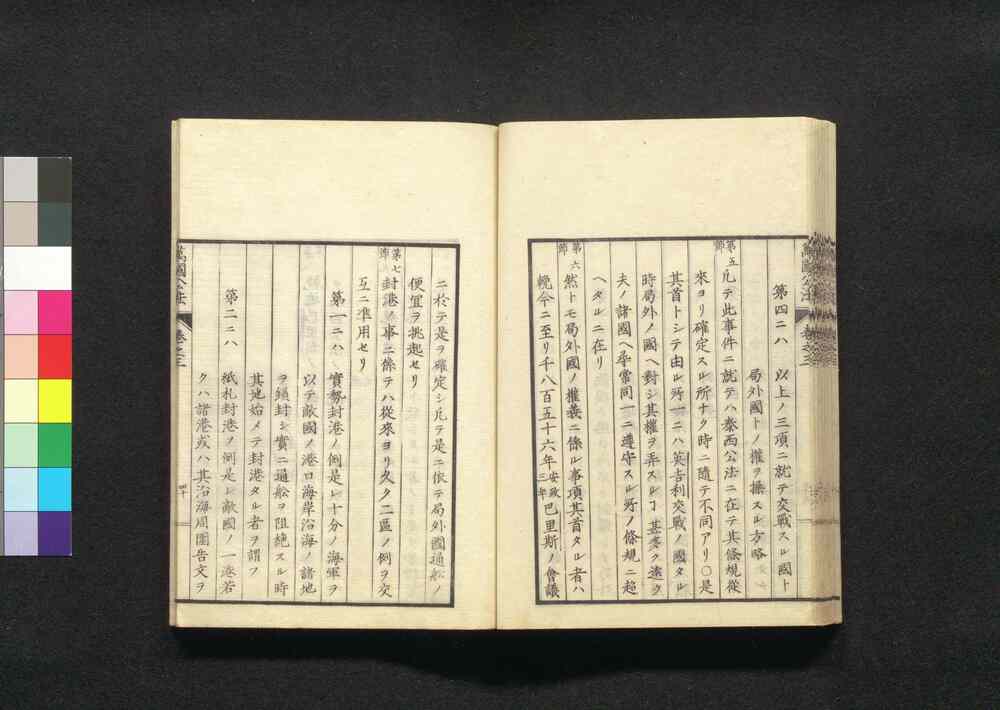 第四ニハ 以上ノ三項ニ就テ交戰スル國ト
局外國トノ權ヲ操スル方略
第五節 凡テ此事件ニ就テハ泰西公法ニ在テ其條規從
來ヨリ確定スル所ナク時ニ隨テ不同アリ○是
其首トシテ由ル所一ニハ英吉利交戰ノ國タル
時局外ノ國ヘ對シ其權ヲ弄スルヿ甚タ遠ク
夫ノ諸國ヘ尋常同一ニ遵守スル所ノ條規ニ超
ヘタルニ在リ
第六節 然トモ局外國ノ權義ニ係ル事項其首タル者ハ
輓今ニ至リ千八百五十六年安政三年巴里斯ノ會議
ニ於テ是ヲ確定シ凡テ是ニ依テ局外國通船ノ
便宜ヲ挑起セリ
第七節 封港ノ事ニ係テハ從來ヨリ久ク二區ノ例ヲ交
互ニ準用セリ
第一ニハ 實勢封港ノ例是レ十分ノ海軍ヲ
以テ敵國ノ港口海岸沿海ノ諸地
ヲ鎖封シ實ニ通船ヲ阻絶スル時
其地始メテ封港タル者ヲ謂フ
第二ニハ 紙札封港ノ例是レ敵國ノ一港若
クハ諸港或ハ其沿海周圍告文ヲ
萬國公法 卷之三
四十